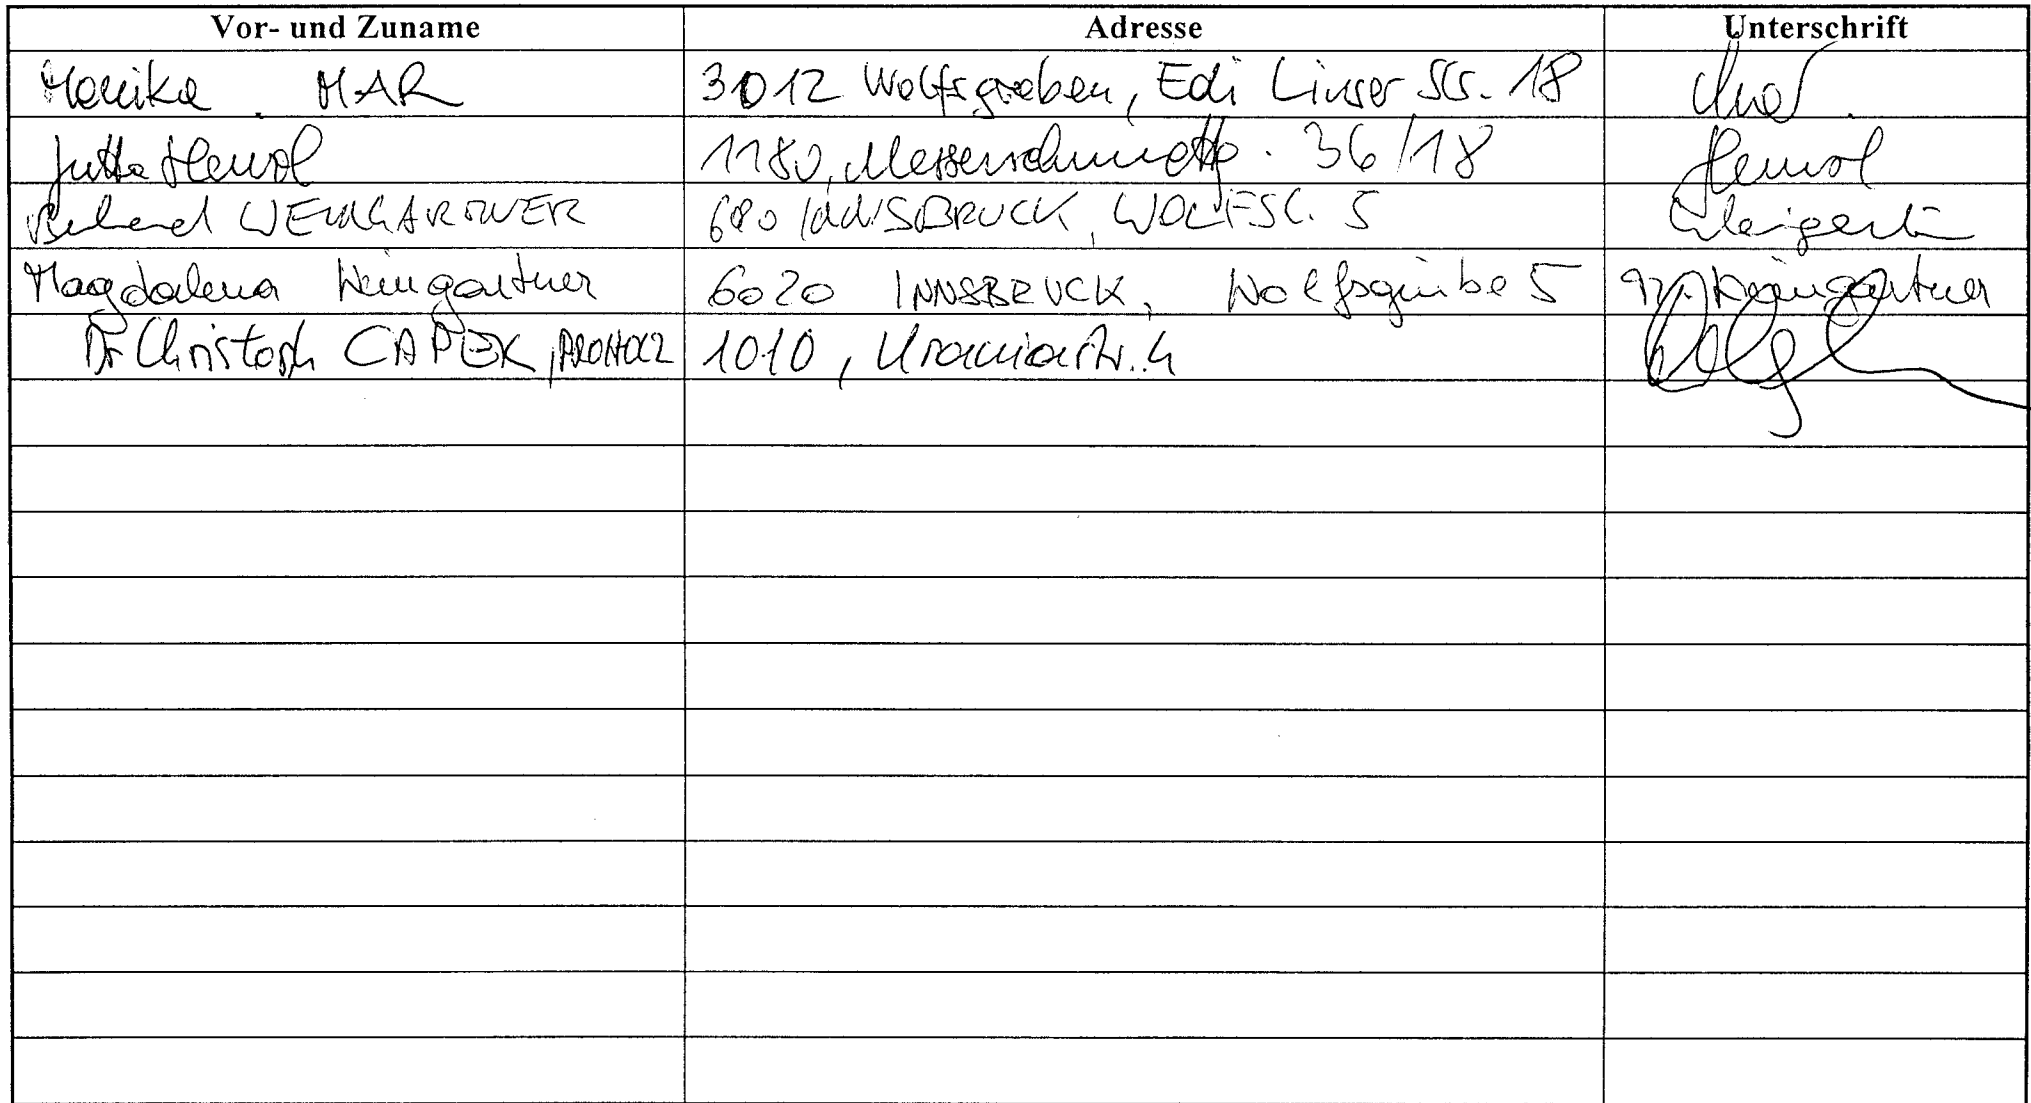 Vor- und Zuname Adresse Unterschrift
Monika MAR 3012 Wolfsgraben, Edi Linser Str. 18
Jutta 1180, 36/18
WEINGARTNER INNSBRUCK, WOLFSG. 5
Magdalena Weingartner 6020 INNSBRUCK, Wolfsgrube 5 M. Weingartner
Dr Christoph CAPEK, PROHOLZ 1010, Uraniastr. 4